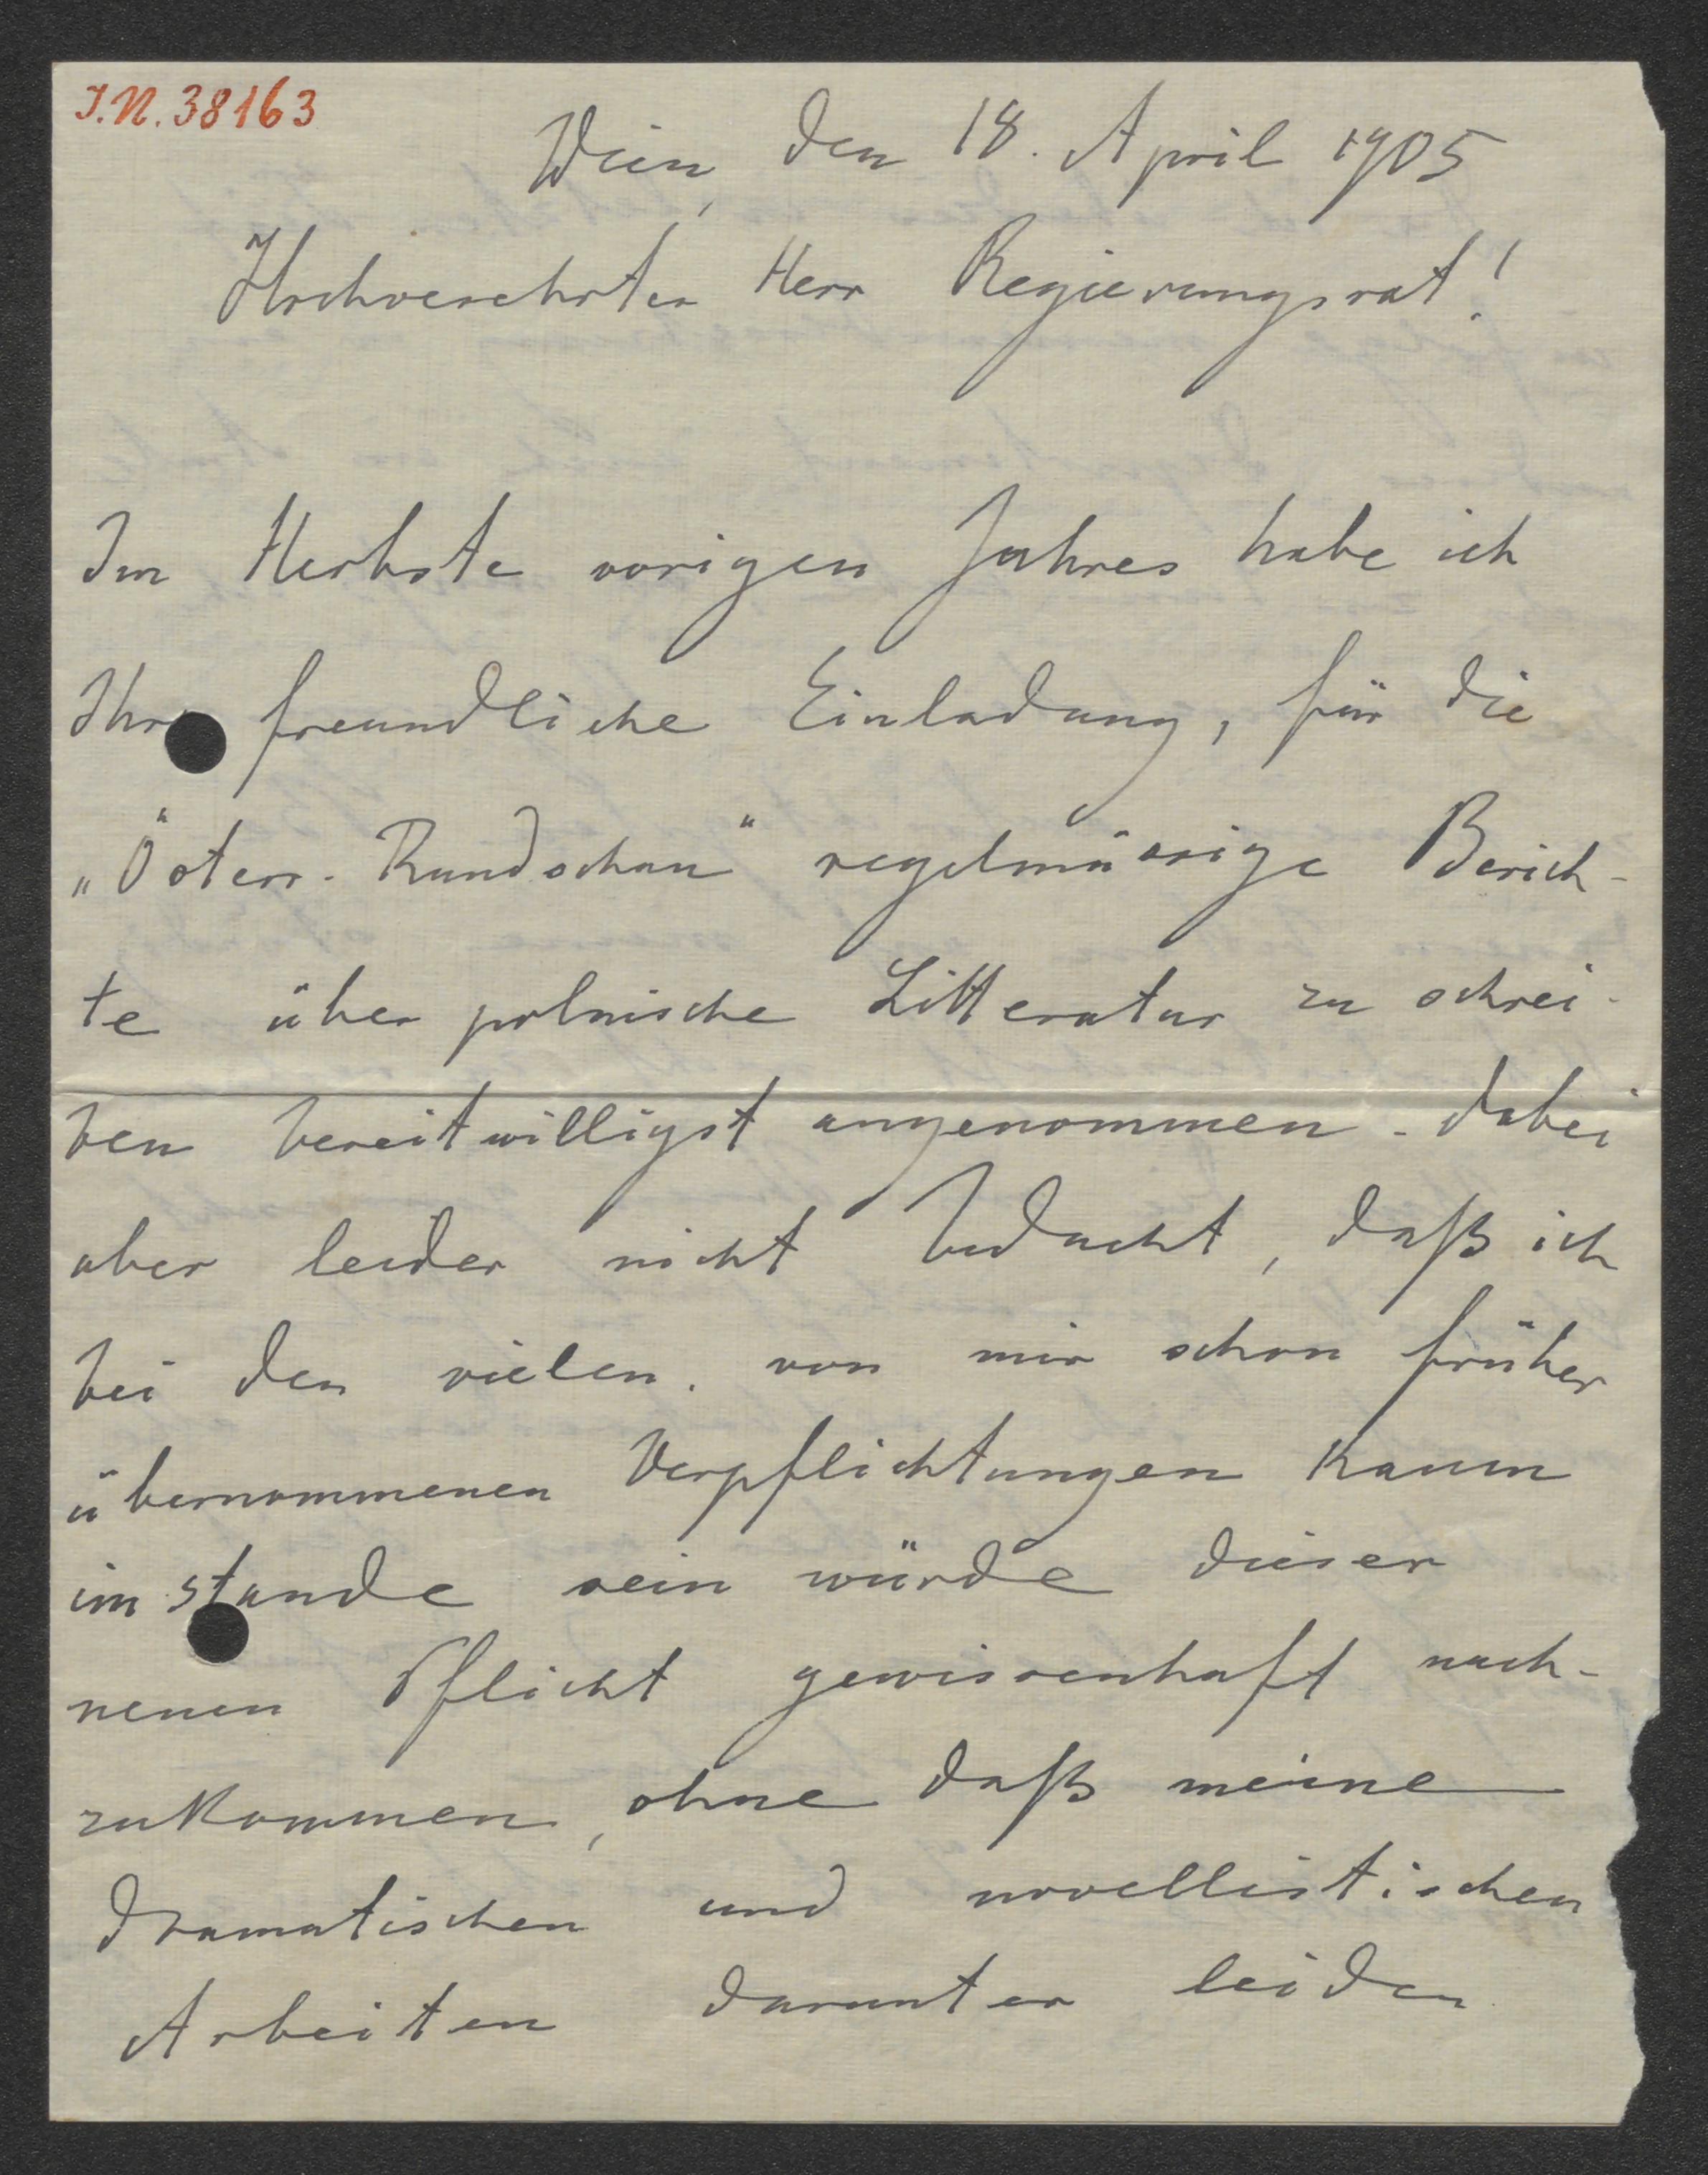 I.N. 38163
Wien, den 18. April 1905
Hochverehrter Herr Regierungsrat!
Im Herbste vorigen Jahres habe ich
Ihre freundliche Einladung, für die
„Österr. Rundschau" regelmässige Berich-
te über polnische Litteratur zu schrei-
ben bereitwilligst angenommen. dabei
aber leider nicht bedacht, daß ich
bei den vielen. von mir schon früher
übernommenen Verpflichtungen kaum
im stande sein würde dieser
neuen Pflicht gewissenhaft nach-
zukommen, ohne daß meine
dramatischen und novellistischen
Arbeiten darunter leiden